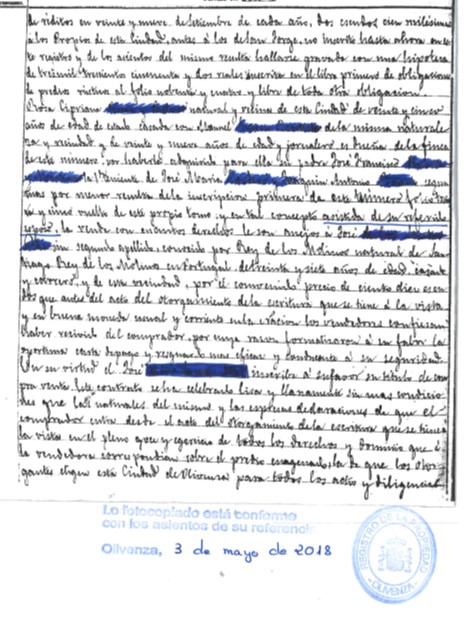 de réditos en veinte y nueve de Setiembre de cada año, dos escudos cien milésimas
á los Propios de esta Ciudad, antes á los de San Jorge, no inscrito hasta ahora en es-
te registro y de los asientos del mismo resulta hallarse gravada con una hipoteca
de tres mil trescientos cincuenta y dos reales inscrita en el libro primero de obligaciones
de predios rústicos al folio noventa y cuatro y libre de toda otra obligacion
Rosa Cipriana natural y vecina de esta Ciudad de veinte y cinco
años de edad de estado casada con Manuel de la misma naturale-
za y vecindad y de veinte y nueve años de edad y jornalero es dueña de la finca
de este número por haberla adquirido para ella su padre José Francisco
de José Maria Joaquin Antonio segun
mas por menor resulta de la inscripcion primera de este número folio
y cinco vuelto de este propio tomo y en tal concepto asistida de su referido
esposo, la vende con cuantos derechos le son anejos á José
sin segundo apellido, conocido por Rey de los Molinos natural de San-
tiago Rey de los Molinos en Portugal, de treinta y siete años de edad, casado
y de esta vecindad, por el convenido precio de ciento diez escu-
dos que antes del acto del otorgamiento de la escritura que se tiene á la vista
y en buena moneda usual y corriente en la Nacion los vendedores confiesan
haber recivido del comprador, por cuya razon formalizaron á su fabor la
oportuna carta de pago y resguardo mas eficaz y conducente á su seguridad.
En su virtud el José inscribe á su favor su título de com-
pra venta. Este contrato se ha celebrado lisa y llanamente sin mas condicio-
nes que las naturales del mismo y las espresas declaraciones de que el
comprador entra desde el acto del otorgamiento de la escritura que se tiene á
la vista en el pleno goce y egercicio de todos los derechos y dominio que á
la vendedora correspondian sobre el predio enagenado, la de que los otor-
gantes eligen esta Ciudad de Olivenza para todos los actos y diligencias
Lo fotocopiado está conforme
con los asientos de su referencia
Olivenza, 3 de mayo de 2018
REGISTRO DE LA PROPIEDAD
OLIVENZA